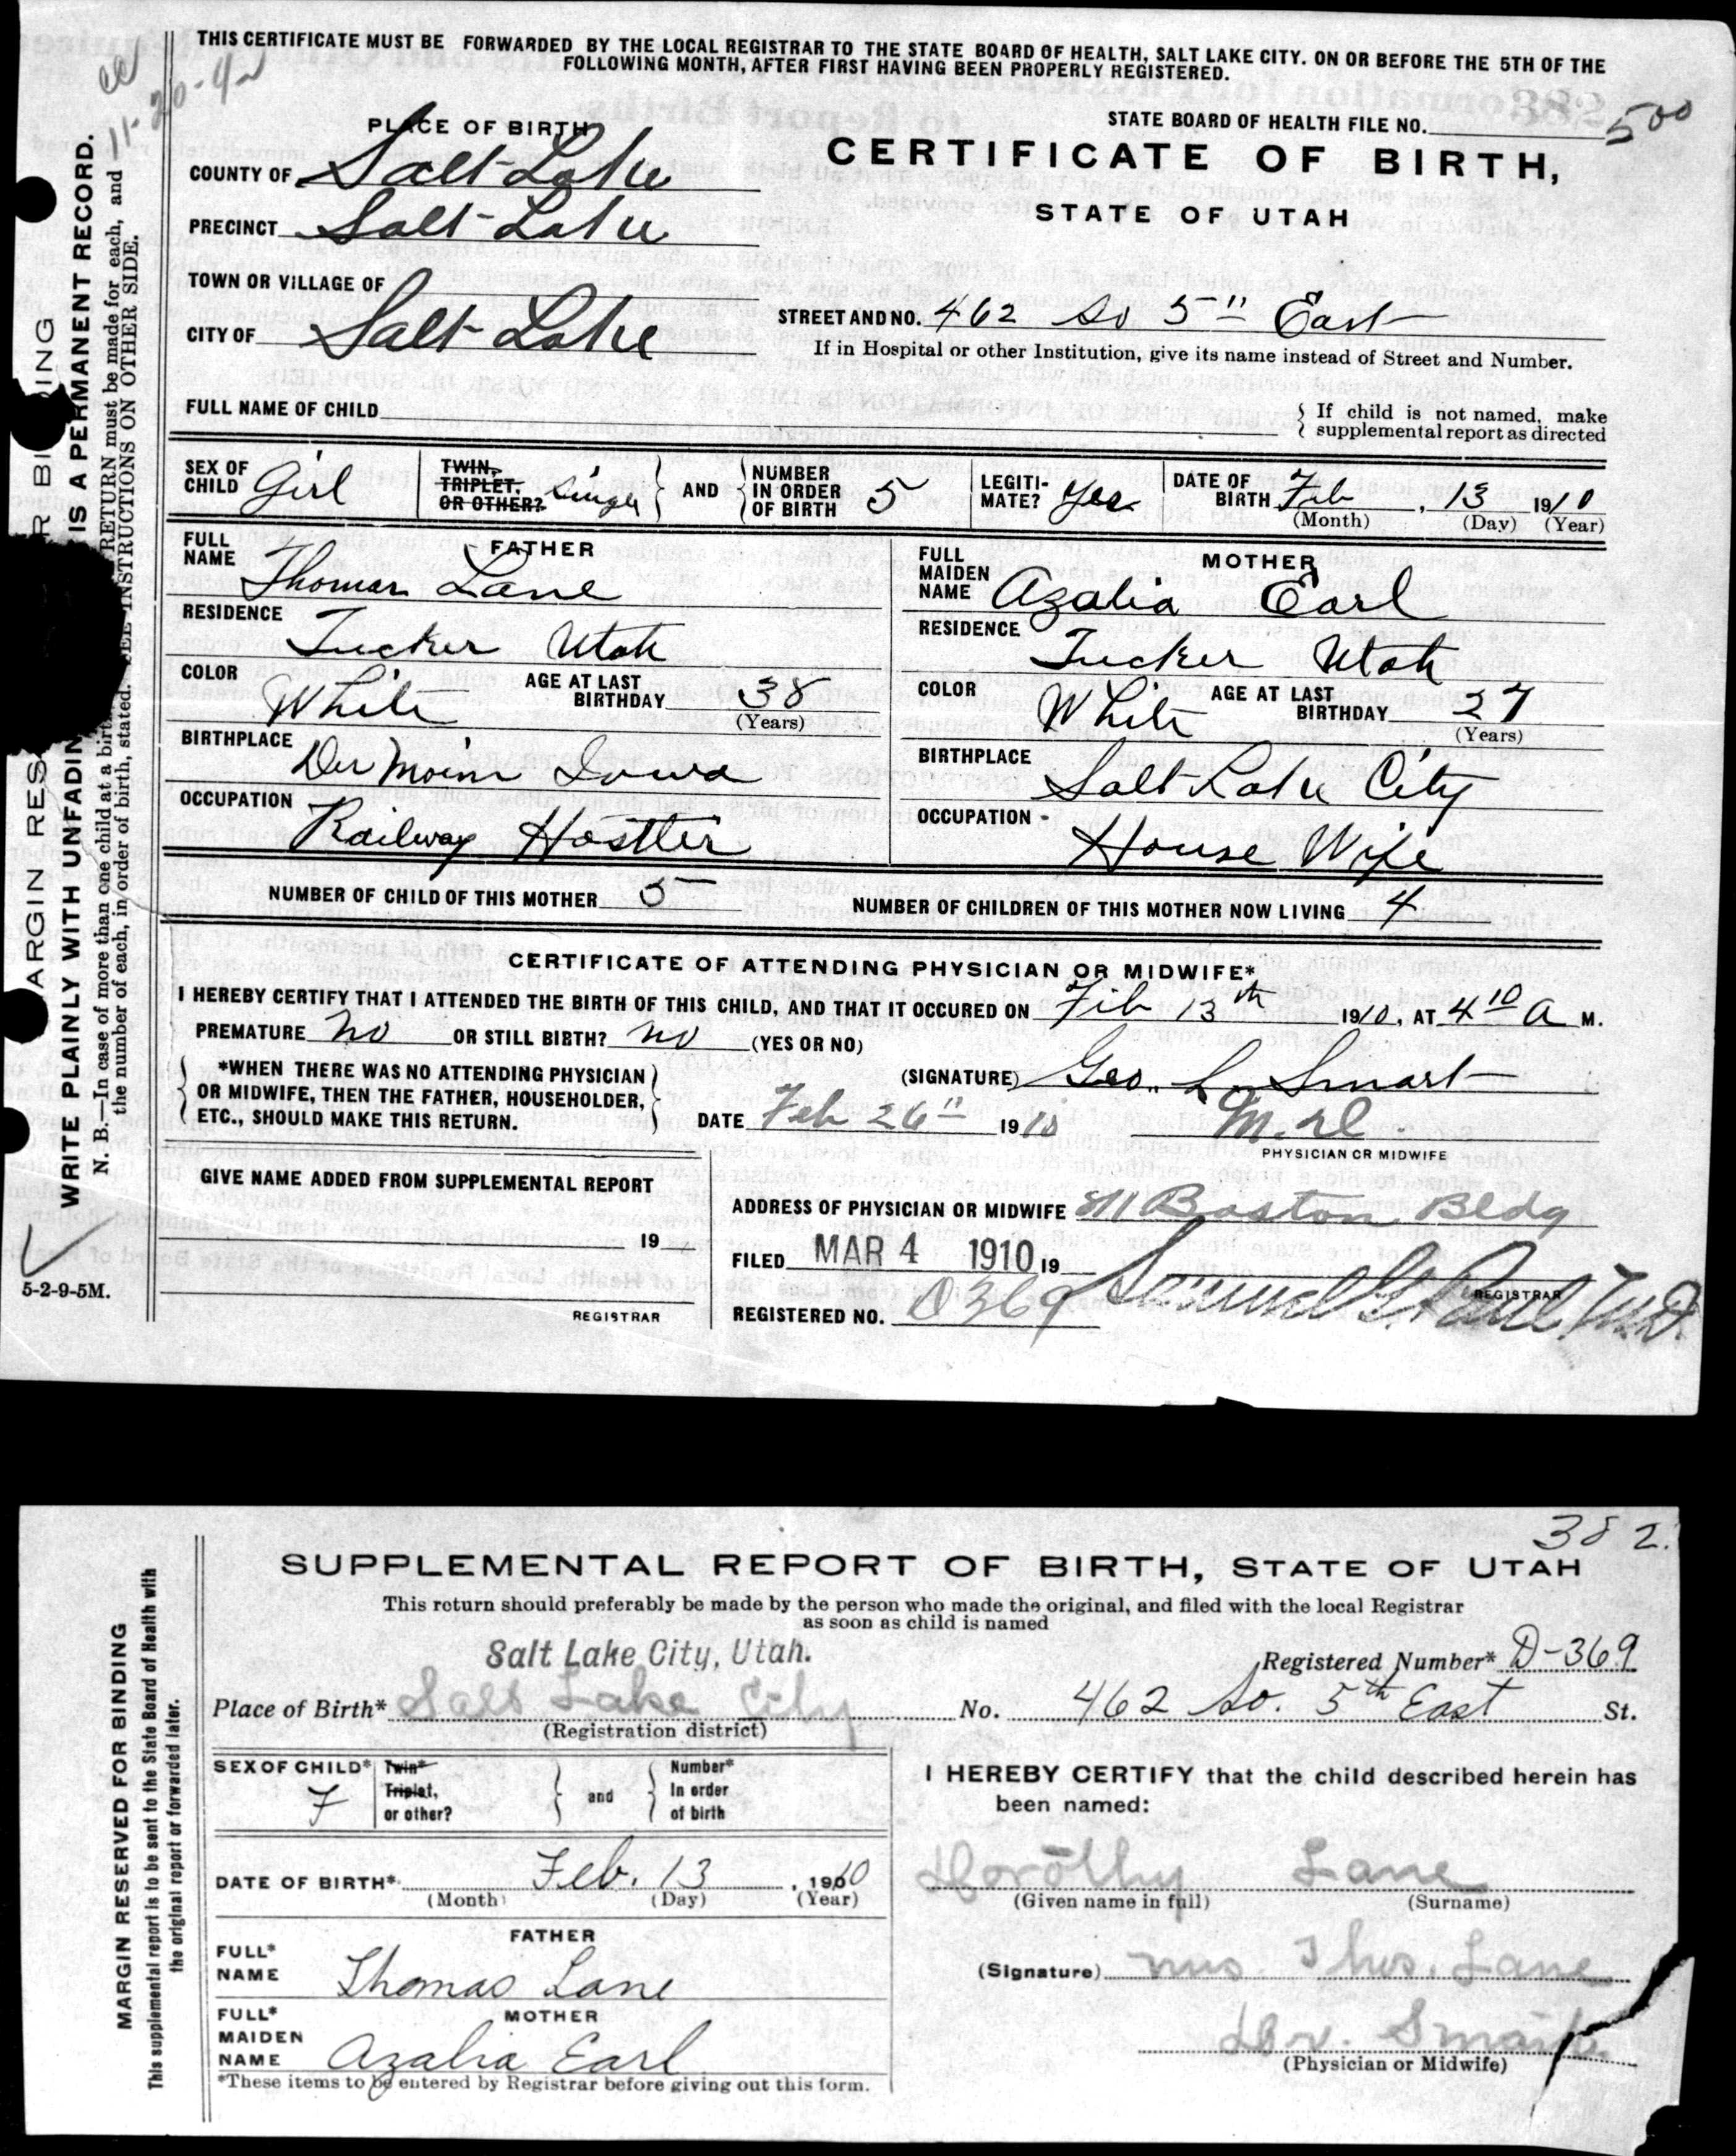 THIS CERTIFICATE MUST BE FORWARDED BY THE LOCAL REGISTRAR TO THE STATE BOARD OF HEALTH, SALT LAKE CITY. ON OR BEFORE THE 5TH OF THE
FOLLOWING MONTH, AFTER FIRST HAVING BEEN PROPERLY REGISTERED.
PLACE OF BIRTH
STATE BOARD OF HEALTH FILE NO. 500
CERTIFICATE OF BIRTH,
STATE OF UTAH
COUNTY OF Salt Lake
PRECINCT Salt Lake
TOWN OR VILLAGE OF
CITY OF Salt Lake
STREET AND NO. 462 So 5" East
If in Hospital or other Institution, give its name instead of Street and Number.
FULL NAME OF CHILD
If child is not named, make
supplemental report as directed
SEX OF CHILD Girl
TWIN, TRIPLET, OR OTHER? Single AND NUMBER IN ORDER OF BIRTH 5
LEGITI-MATE? Yes
DATE OF BIRTH Feb, 13 1910
(Month) (Day) (Year)
FATHER
FULL NAME Thomas Lane
RESIDENCE Tucker Utah
COLOR White AGE AT LAST BIRTHDAY 38
(Years)
BIRTHPLACE Des Moines Iowa
OCCUPATION Railway Hostler
MOTHER
FULL MAIDEN NAME Azalia Earl
RESIDENCE Tucker Utah
COLOR White AGE AT LAST BIRTHDAY 27
(Years)
BIRTHPLACE Salt Lake City
OCCUPATION - House Wife
NUMBER OF CHILD OF THIS MOTHER 5
NUMBER OF CHILDREN OF THIS MOTHER NOW LIVING 4
CERTIFICATE OF ATTENDING PHYSICIAN OR MIDWIFE*
I HEREBY CERTIFY THAT I ATTENDED THE BIRTH OF THIS CHILD, AND THAT IT OCCURED ON Feb 13th 1910, AT 4 10 A M.
PREMATURE no OR STILL BIRTH? no (YES OR NO)
*WHEN THERE WAS NO ATTENDING PHYSICIAN
OR MIDWIFE, THEN THE FATHER, HOUSEHOLDER,
ETC., SHOULD MAKE THIS RETURN.
(SIGNATURE) Geo. L. Smart
DATE Feb 26" 1910 M.D.
PHYSICIAN OR MIDWIFE
GIVE NAME ADDED FROM SUPPLEMENTAL REPORT
19
REGISTRAR
ADDRESS OF PHYSICIAN OR MIDWIFE Boston Bldg
FILED MAR 4 1910 19
REGISTRAR
REGISTERED NO. D369 Samuel G. Paul M.D.
11-20-4
ARGIN RES
R BI DING
WRITE PLAINLY WITH UNFADIN
IS A PERMANENT RECORD.
N. B.—In case of more than one child at a birt
RETURN must be made for each, and
the number of each, in order of birth, stated.
EE INSTRUCTIONS ON OTHER SIDE.
5-2-9-5M.
382.
SUPPLEMENTAL REPORT OF BIRTH, STATE OF UTAH
This return should preferably be made by the person who made the original, and filed with the local Registrar
as soon as child is named
Salt Lake City, Utah.
Registered Number* D-369
Place of Birth* Salt Lake City No. 462 So. 5th East St.
(Registration district)
SEX OF CHILD* F
Twin* Triplet, or other? and Number* In order of birth
DATE OF BIRTH* Feb. 13, 1910
(Month) (Day) (Year)
FATHER
FULL* NAME Thomas Lane
MOTHER
FULL* MAIDEN NAME Azalia Earl
*These items to be entered by Registrar before giving out this form.
I HEREBY CERTIFY that the child described herein has
been named:
Dorothy Lane
(Given name in full) (Surname)
(Signature) Mrs. Thos. Lane
Dr. Smart.
(Physician or Midwife)
MARGIN RESERVED FOR BINDING
This supplemental report is to be sent to the State Board of Health with
the original report or forwarded later.